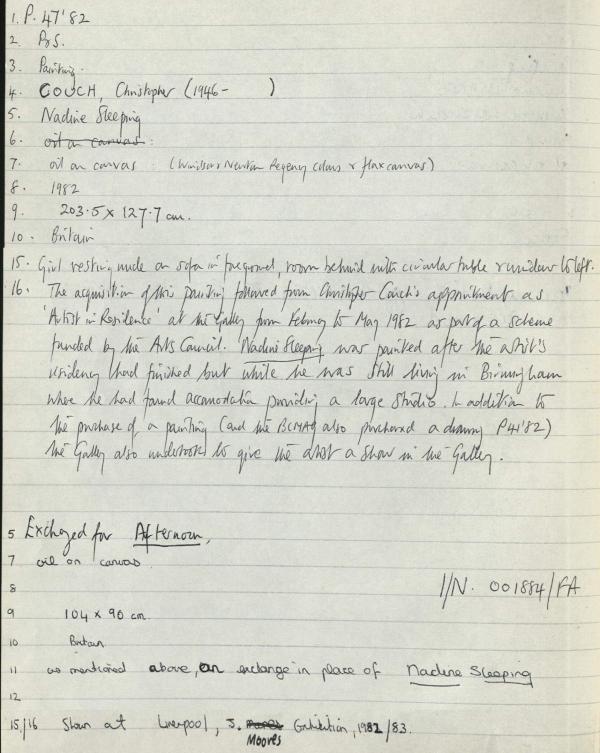 1. P. 47'82
2. P&S.
3. Painting.
4. COUCH, Christopher (1946- )
5. Nadine Sleeping
6. oil on canvas :
7. oil on canvas (Windsor & Newton Regency colours & flax canvas)
8. 1982
9. 203.5 x 127.7 cm.
10. Britain
15. Girl resting nude on sofa in foreground, room behind with circular table & window to left.
16. The acquisition of this painting followed from Christopher Couch's appointment as
'Artist in Residence' at the Gallery from February to May 1982 as part of a scheme
funded by the Arts Council. Nadine Sleeping was painted after the artist's
residency had finished but while he was still living in Birmingham
where he had found accomodation providing a large studio. In addition to
the purchase of a painting (and the BCMAG also purchased a drawing P41'82)
the Gallery also undertook to give the artist a show in the Gallery.
5 Exchanged for Afternoon,
7 oil on canvas.
8
I/N. 001884/FA
9 104 x 90 cm.
10 Britain
11 as mentioned above, an exchange in place of Nadine Sleeping
12
15/16 Shown at Liverpool, J. Moores Exhibition, 1982/83.